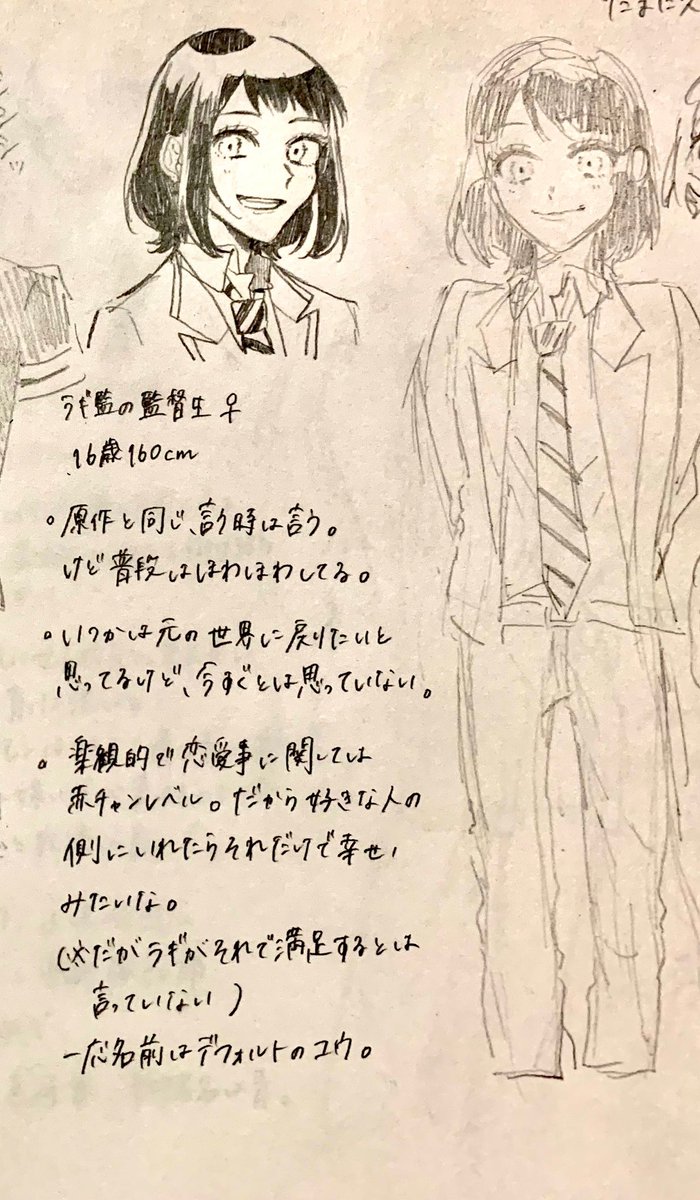 たまに人
ラギ監の監督生♀
16歳160cm
。原作と同じ、言う時は言う。
けど普段はほわほわしてる。
。いつかは元の世界に戻りたいと
思ってるけど、今すぐとは思っていない。
。楽観的で恋愛事に関しては
赤チャンレベル。だから好きな人の
側にいれたらそれだけで幸せ
みたいな。
(※だがラギがそれで満足するとは
言っていない)
一応名前はデフォルトのユウ。